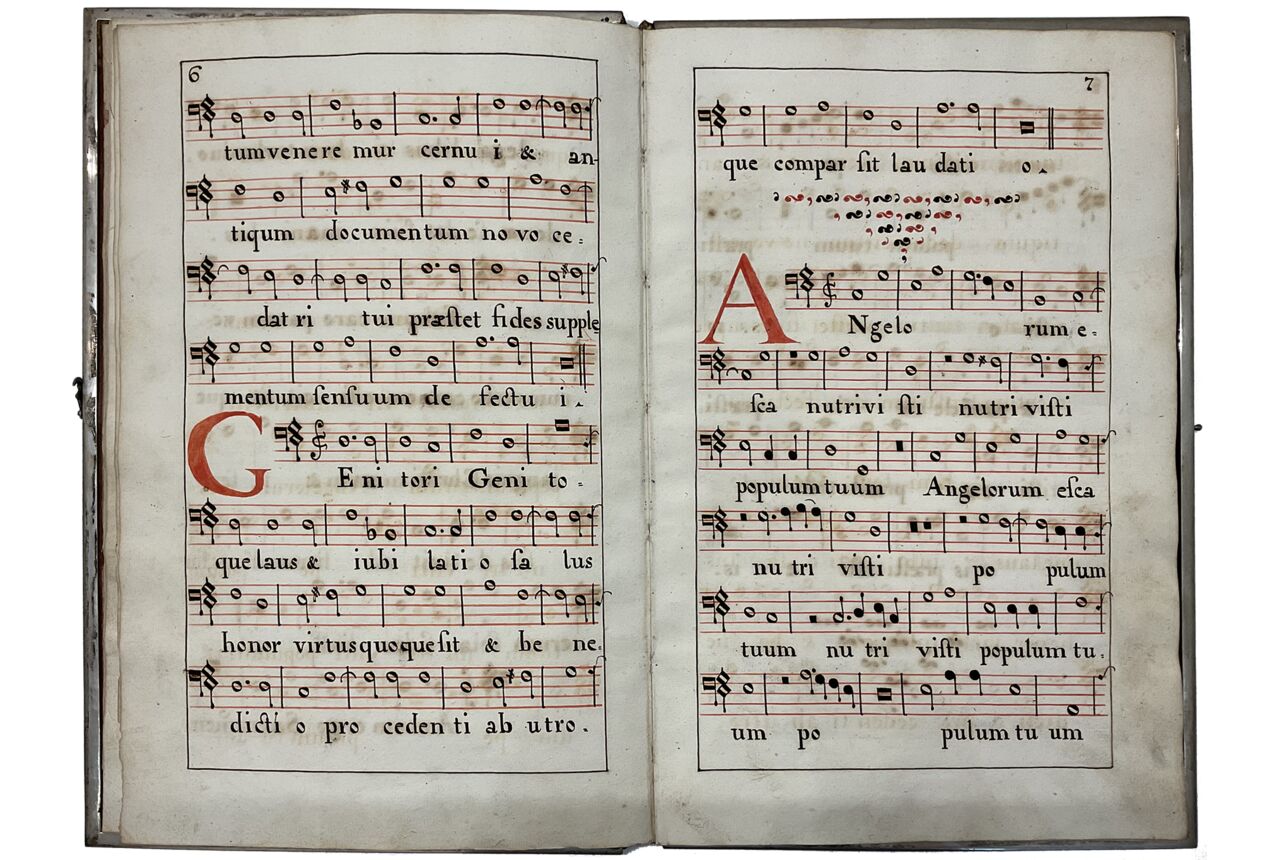 6
tum venere mur cernu i & an-
tiqum documentum no vo ce-
dat ri tui præstet fides supple
mentum ſenſuum de fectu i.
GEni tori Geni to-
que laus & iubi lati o ſa lus
honor virtus quoque ſit & be ne-
dicti o pro ceden ti ab utro.
7
que compar ſit lau dati o.
ANgelo rum e-
ſca nutrivi ſti nutri viſti
populum tuum Angelorum eſca
nu tri viſti po pulum
tuum nu tri viſti populum tu-
um po pulum tu um